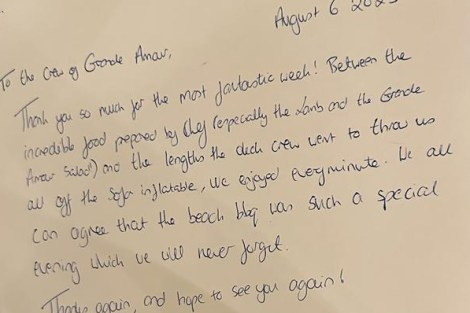 August 6 202
To the crew of Grande Amour,
Thank you so much for the most fantastic week! Between the
incredible food prepared by Chef (especially the lamb and the Grande
Amour Salad") and the lengths the deck crew went to throw us
all off the sofa inflatable, we enjoyed every minute. We all
can agree that the beach bbq was such a special
evening which we will never forget.
Thanks again, and hope to see you again!